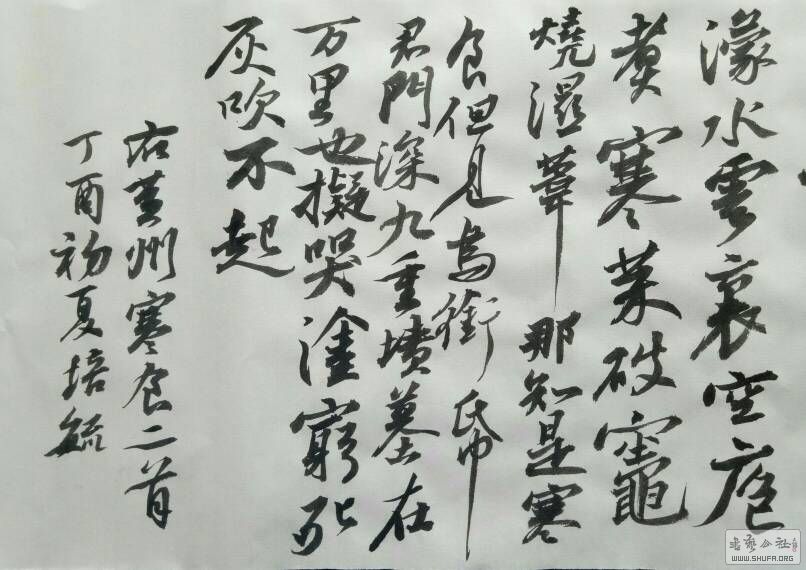 濛水雲裏空庖
煮寒菜破竈
燒濕葦那知是寒
食但見烏銜帋
君門深九重墳墓在
万里也擬哭塗窮死
灰吹不起
右黃州寒食二首
丁酉初夏培毓
书艺公社
WWW.SHUFA.ORG